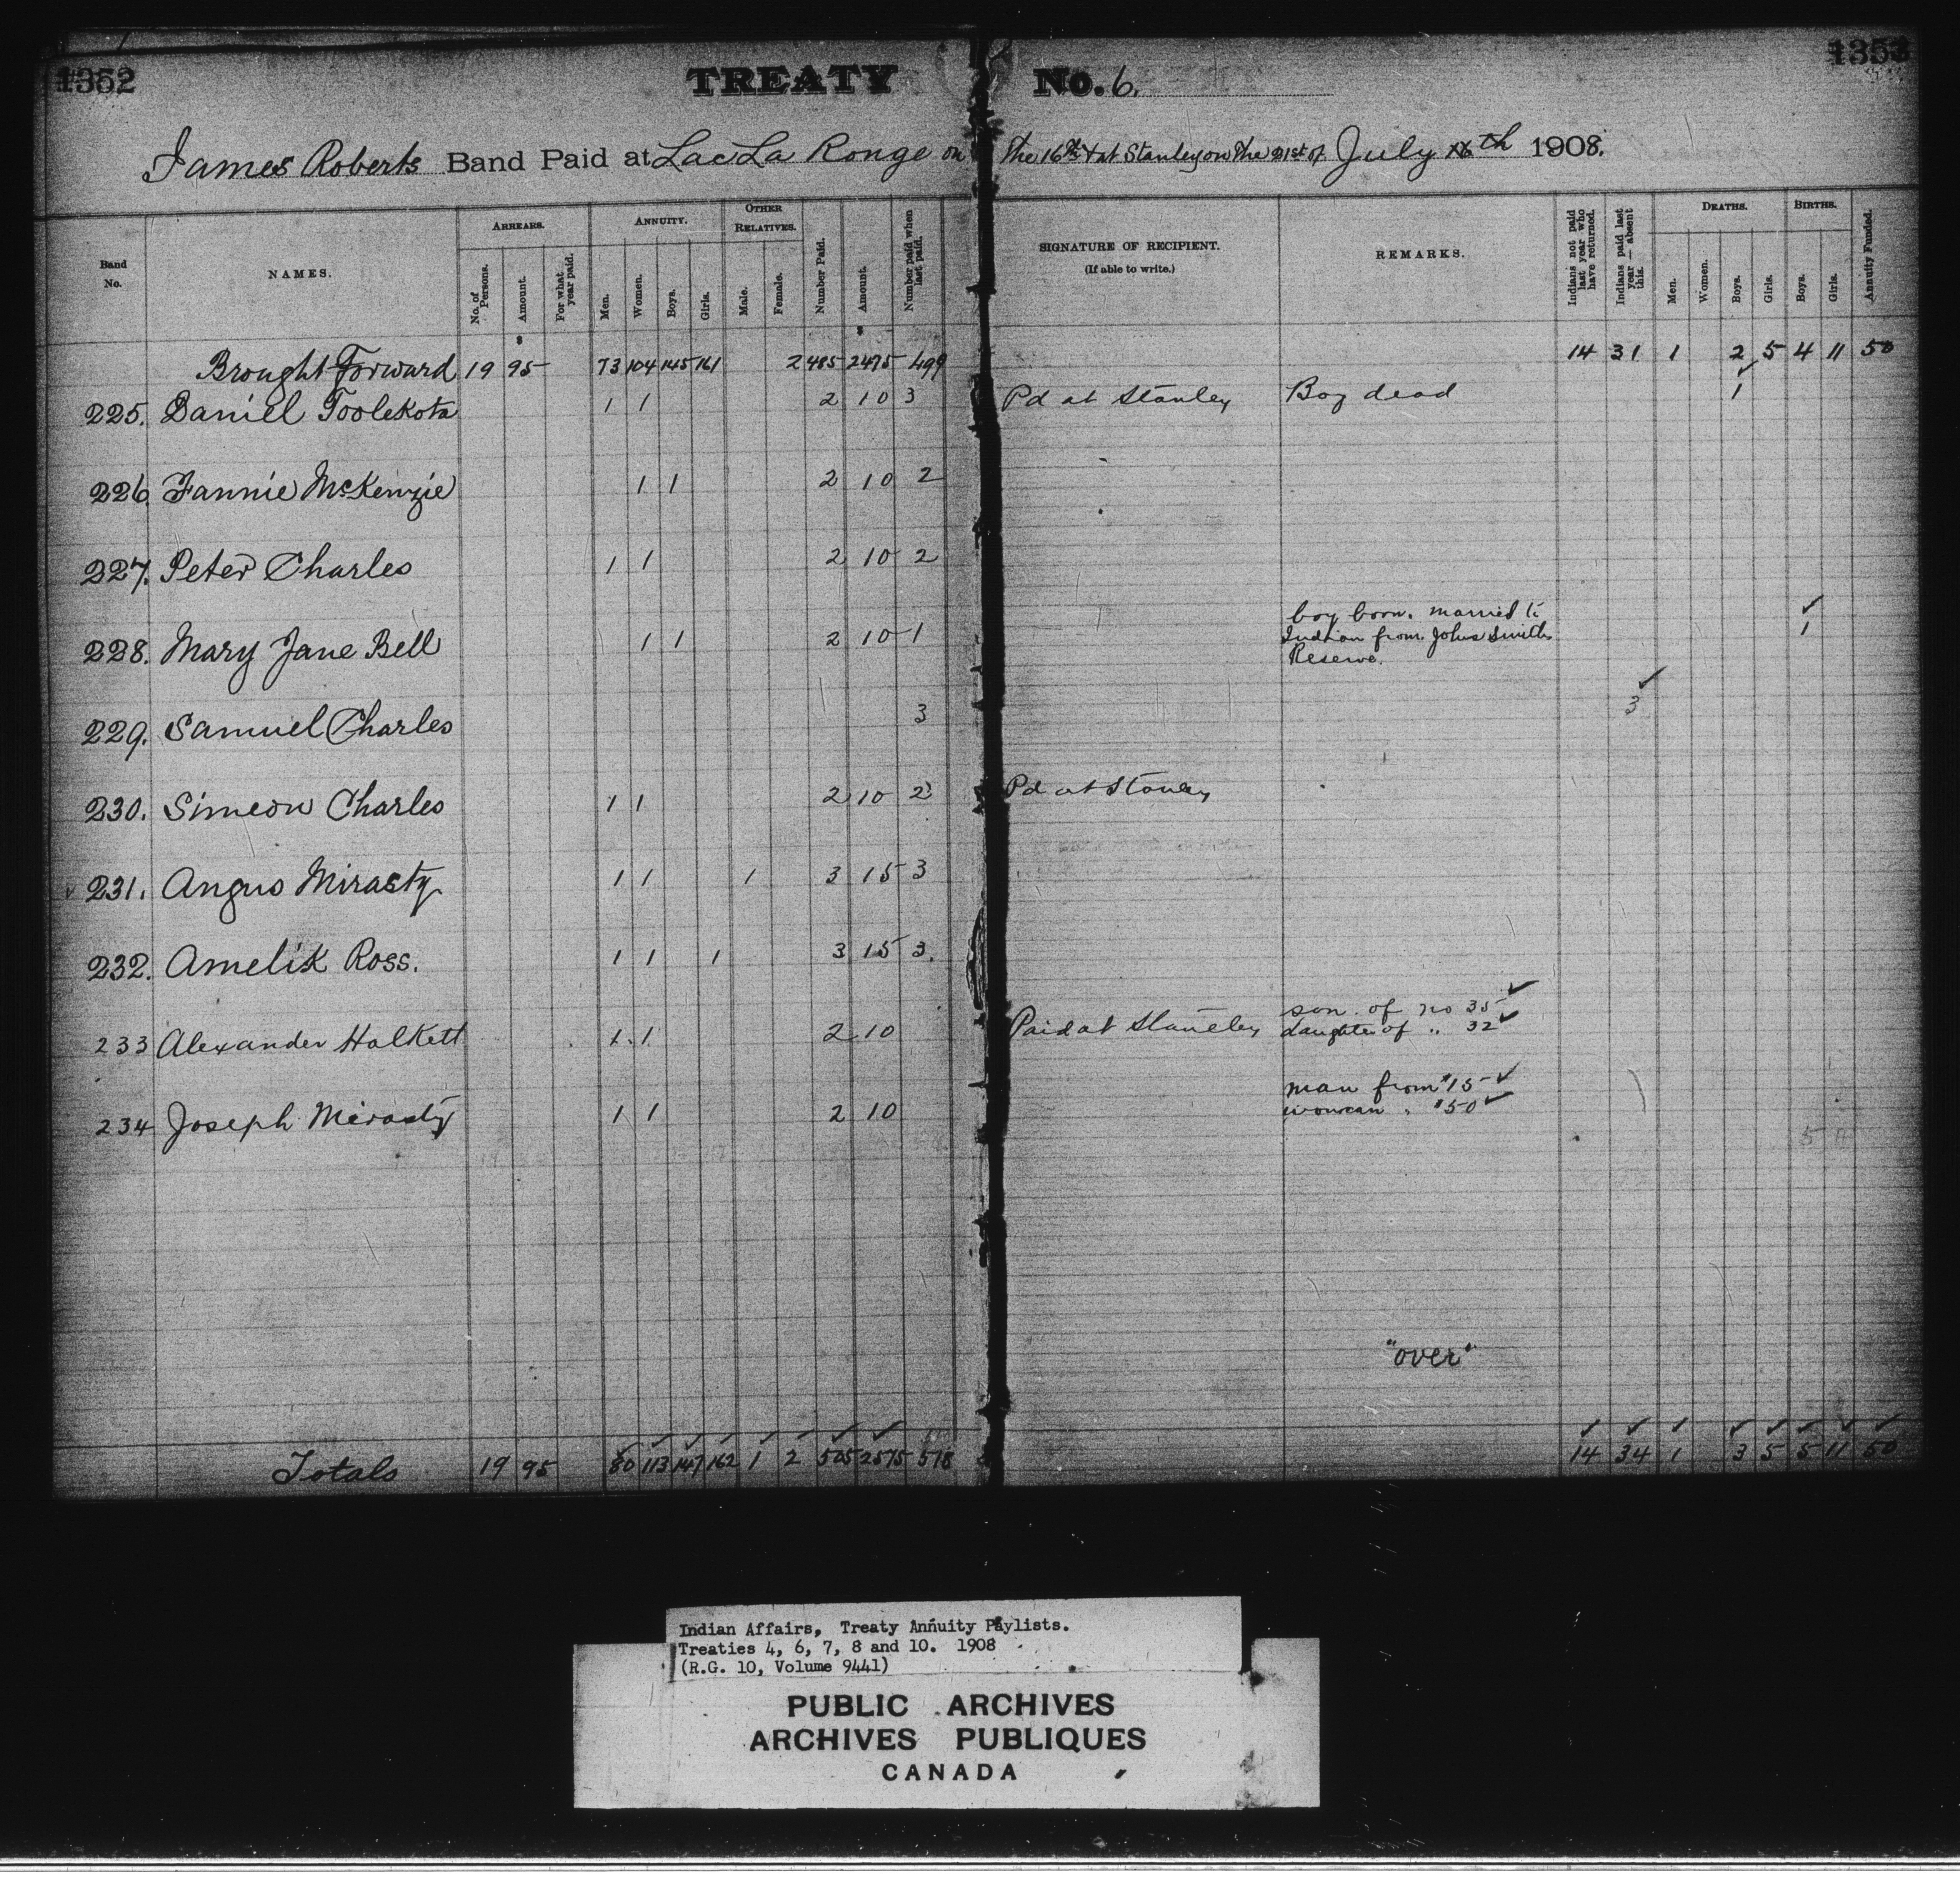 1352
TREATY No. 6.
1353
James Roberts Band Paid at Lac La Ronge on the 16th & at Stanley on the 21st of July 16th 1908.
Band No.
NAMES.
ARREARS.
No. of Persons.
Amount.
For what year paid.
ANNUITY.
Men.
Women.
Boys.
Girls.
OTHER RELATIVES.
Male.
Female.
Number Paid.
Amount.
Number paid when last paid.
SIGNATURE OF RECIPIENT.
(If able to write.)
REMARKS.
Indians not paid last year who have returned.
Indians paid last year — absent this.
DEATHS.
Men.
Women.
Boys.
Girls.
BIRTHS.
Boys.
Girls.
Annuity Funded.
$ $
Brought Forward 19 95 73 104 145 161 2 485 2475 499 14 31 1 2 5 4 11 50
225. Daniel Toolekota 1 1 2 10 3 Pd at Stanley Boy dead ✓ 1
226 Fannie McKenzie 1 1 2 10 2
227. Peter Charles 1 1 2 10 2
228. Mary Jane Bell 1 1 2 10 1 boy born. married to ✓ 1
Indian from John Smiths
Reserve.
229. Samuel Charles 3 ✓ 3
230. Simeon Charles 1 1 2 10 2 Pd at Stanley
✓ 231. Angus Mirasty 1 1 1 3 15 3
232. Amelik Ross. 1 1 1 3 15 3.
233 Alexander Halkett 1 1 2 10 Paid at Staneley son of no 35 ✓
daughter of " 32 ✓
234 Joseph Mirasty 1 1 2 10 man from #15 ✓
woman " #50 ✓
5 11
"over"
Totals 19 95 80 113 147 162 1 2 505 2575 518 14 34 1 3 5 5 11 50
Indian Affairs, Treaty Annuity Paylists.
Treaties 4, 6, 7, 8 and 10. 1908
(R.G. 10, Volume 9441)
PUBLIC ARCHIVES
ARCHIVES PUBLIQUES
CANADA